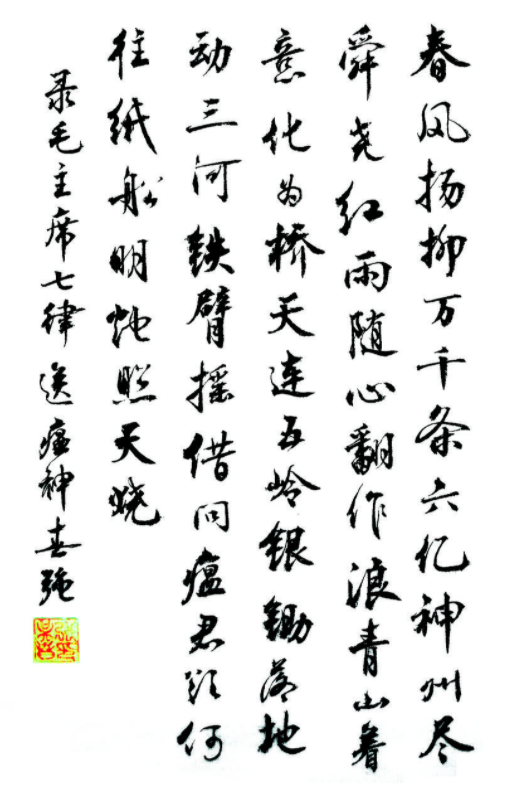 春风扬柳万千条六亿神州尽
舜尧红雨随心翻作浪青山着
意化为桥天连五岭银锄落地
动三河铁臂摇借问瘟君欲何
往纸船明烛照天烧
录毛主席七律送瘟神春强